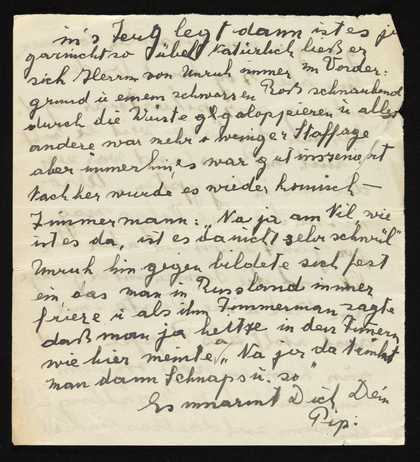 in's Zeug legt dann ist es ja
garnicht so übel. Natürlich ließ er
sich Herrn von Unruh immer im Vorder:
grund u einem schwarzen Roß schnaubend
durch die Wüste galoppieren u alles
andere war mehr o weniger Staffage
aber immerhin, es war gut inszeniert
Nachher wurde es wieder komisch –
Zimmermann: „Na ja, am Nil wie
ist es da, ist es da nicht sehr schwül"
Unruh hin gegen bildete sich fest
ein, das man in Russland immer
friere u als ihm Zimmerman sagte
daß man ja heitze in den Zimern
wie hier meinte „Na ja da trinkt
man dann Schnaps u. so"
Es umarmt Dich Dein
Pip.